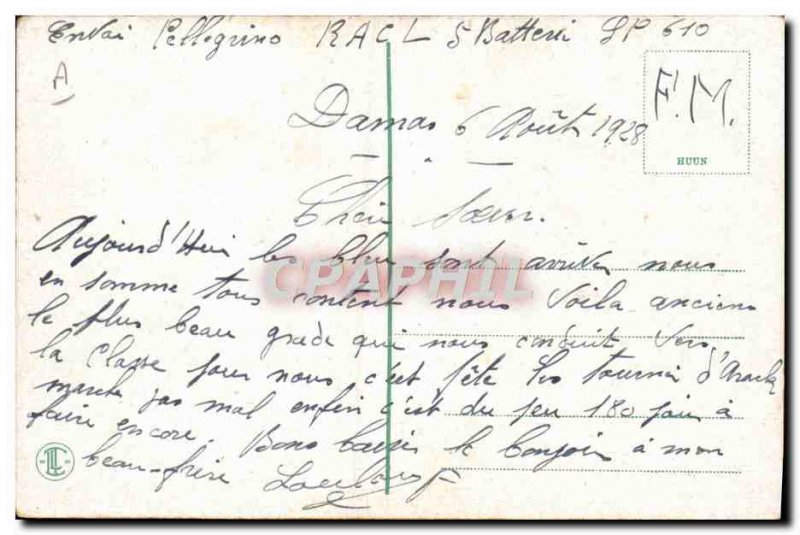 Envoi Pellegrino RACL 5 Batterie SP 610
A
F.M.
HUUN
Damas 6 Août 1928
Cheir Soeur.
Aujourd'Hui les bleu sont arrivés nous
en somme tous content nous voila anciens
le plus beau grade qui nous conduit vers
la Classe pour nous c'est fête les tournée d'Arack
marche pas mal enfin c'est du peu 180 jour à
faire encore. Bons baiser le bonjour à mon
beau-frère
CPAPHIL